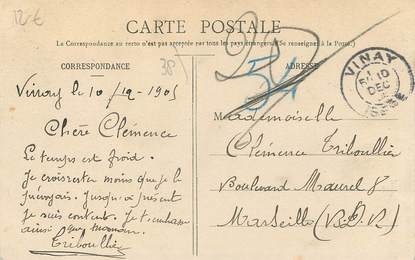 12€
CARTE POSTALE
La Correspondance au recto n'est pas acceptée par tous les pays étrangers (Se renseigner à la Poste)
CORRESPONDANCE
38
ADRESSE
54
VINAY
10
DEC
Vinay le 10/12-1905
Chère Clémence
Le temps est froid.
Je croirestu moins que je le
prévoyais. Jusqu'à présent
je suis content. Je t'embrasse
ainsi que maman.
Triboullier
Mademoiselle
Clémence Triboullier
Boulevard Maurel 8
Marseille (B.D.R)